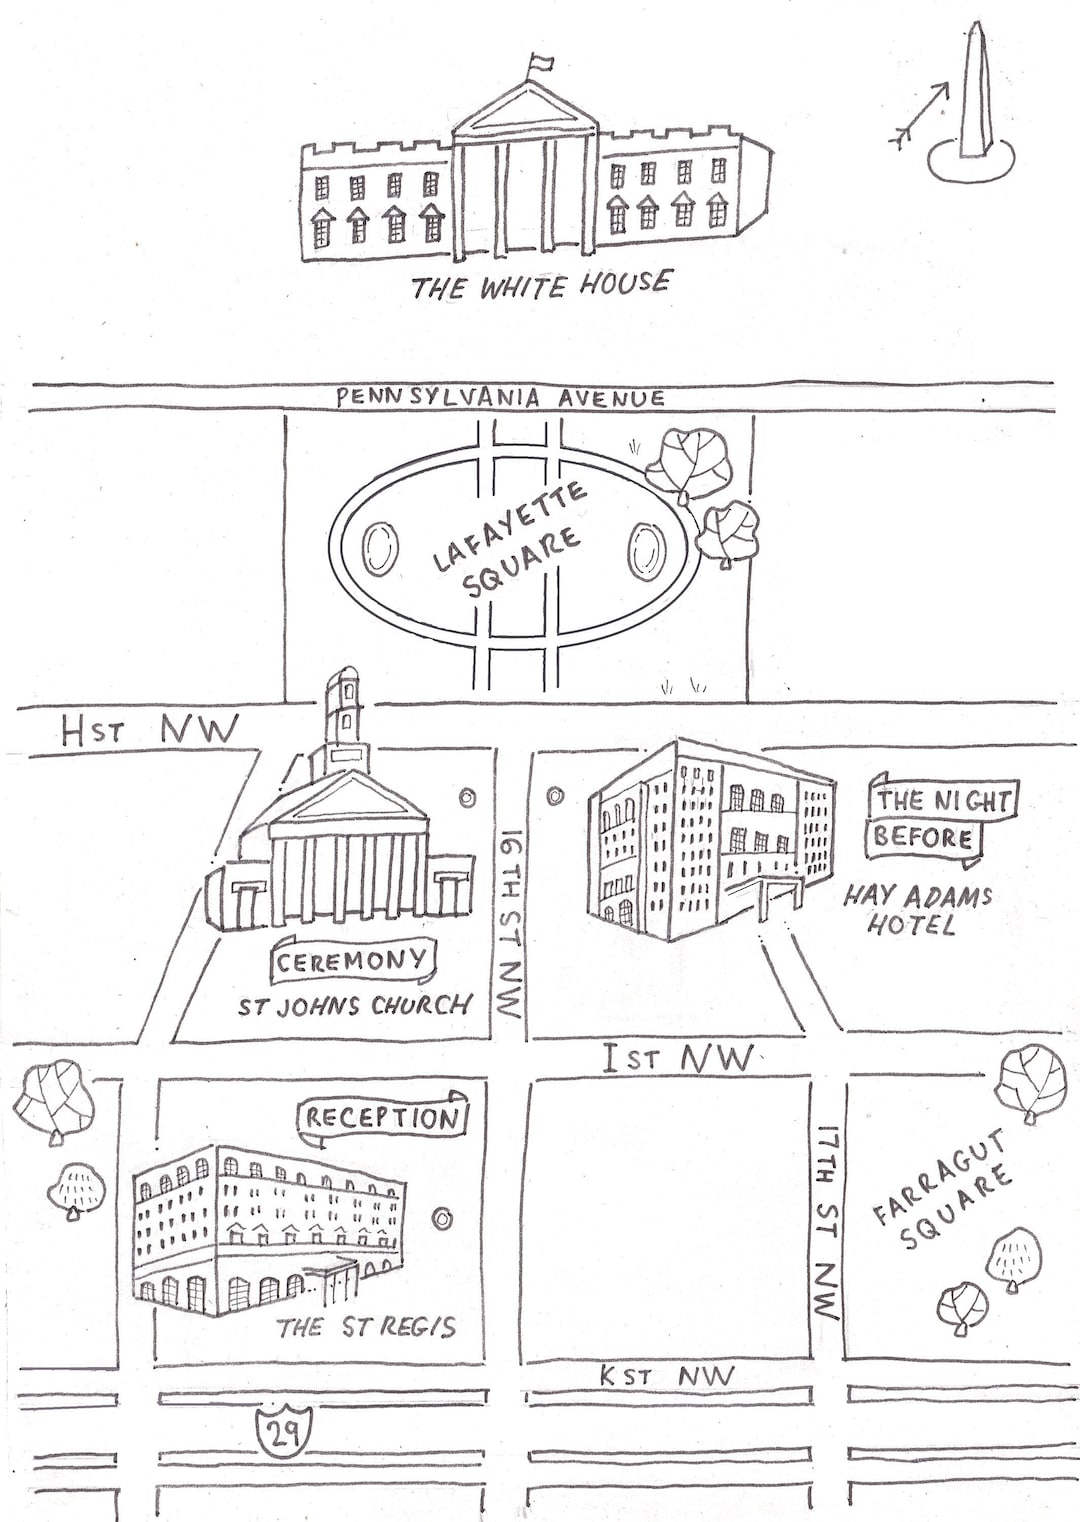 THE WHITE HOUSE
PENNSYLVANIA AVENUE
LAFAYETTE
SQUARE
H ST NW
THE NIGHT
BEFORE
HAY ADAMS
HOTEL
16TH ST NW
CEREMONY
ST JOHNS CHURCH
I ST NW
RECEPTION
17TH ST NW
FARRAGUT
SQUARE
THE ST REGIS
K ST NW
29